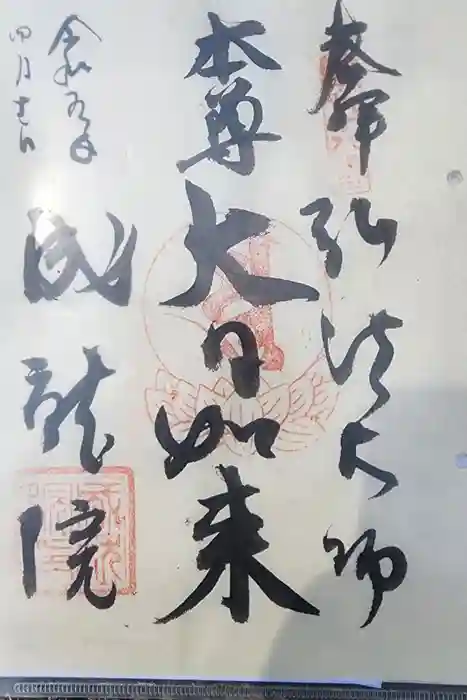 奉拝 弘法大師
本尊 大日如来
令和五年
四月十一日
成龍院